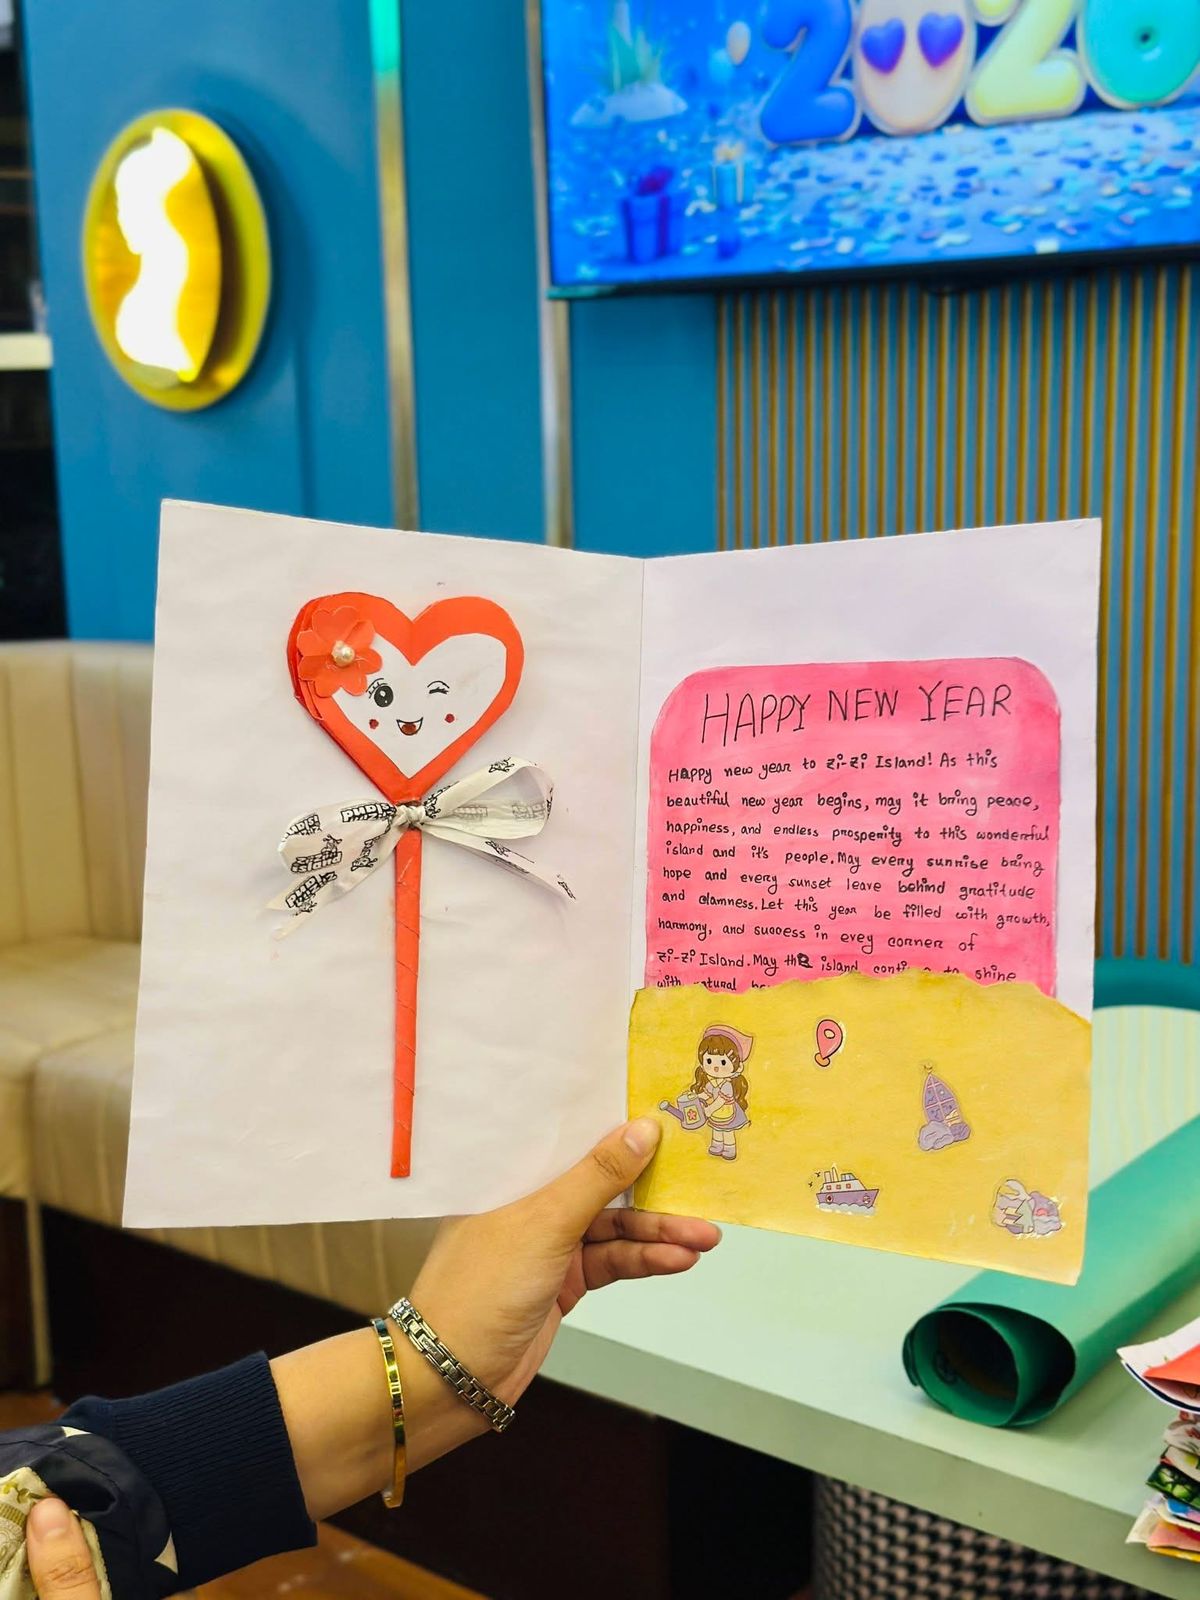 2026
HAPPY NEW YEAR
Happy new year to zi-zi Island! As this
beautiful new year begins, may it bring peace,
happiness, and endless prosperity to this wonderful
island and it's people. May every sunrise bring
hope and every sunset leave behind gratitude
and clamness. Let this year be filled with growth,
harmony, and success in evey corner of
zi-zi Island. May the island to shine
with